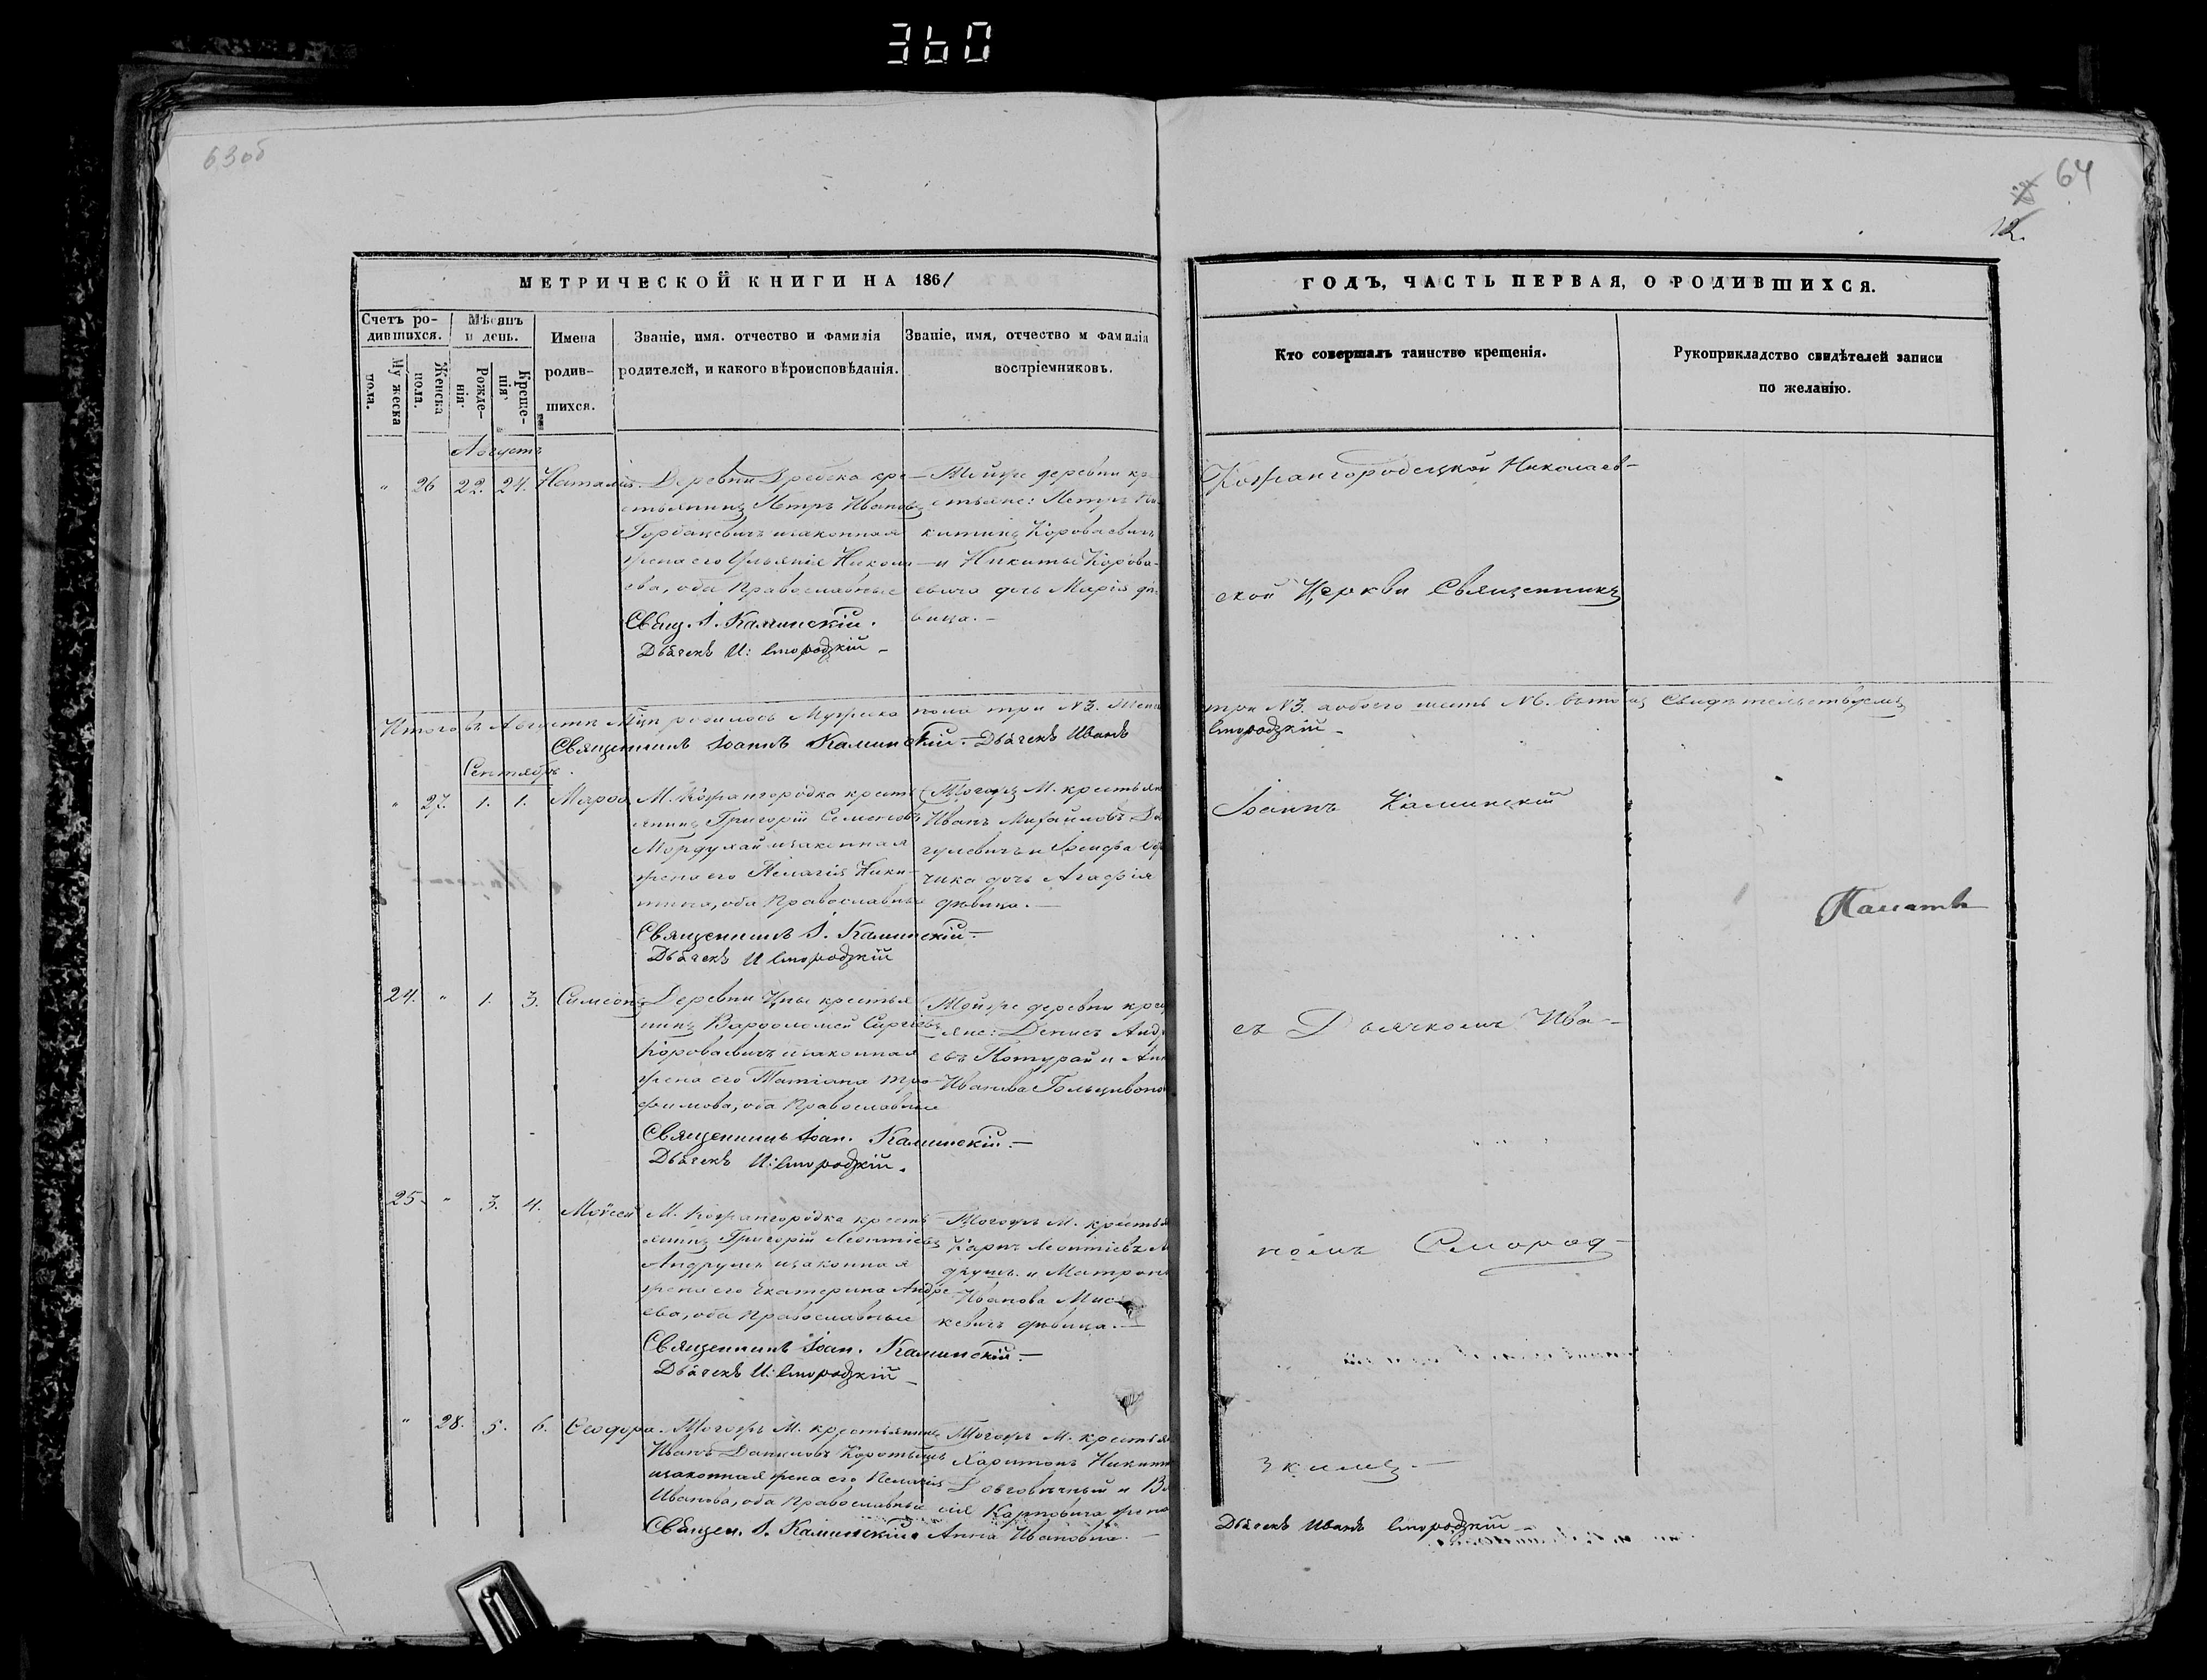 360
63об
64
12.
МЕТРИЧЕСКОЙ КНИГИ НА 1861
ГОДЪ, ЧАСТЬ ПЕРВАЯ, О РОДИВШИХСЯ.
Счетъ ро-
дившихся.
Мужеска
пола.
Женска
пола.
Мѣсяцъ
и день.
Рожде-
нія.
Креще-
нія.
Имена
родив-
шихся.
Званіе, имя. отчество и фамилія
родителей, и какого вѣроисповѣданія.
Званіе, имя, отчество и фамилія
воспріемниковъ.
Кто совершалъ таинство крещенія.
Рукоприкладство свидѣтелей записи
по желанію.
Августъ
" 26 22. 24. Наталія.
Деревни Дребска кре-
стьянинъ Петръ Ивановъ
Горбацевичъ и законная
жена его Ульянія Никола-
ева, оба Православные
Свящ. І. Каминскій.
Дьячекъ И: Смородзкій
Тойже деревни кре
стьяне: Петръ Ни
китинъ Короваевичъ
и Никиты Корова-
евича дочь Марія дѣ-
вица.
Кожангородецкой Николаев-
ской Церкви Священникъ
Итого въ Августѣ М-цѣ родилось Мужеска пола три №3. Женс
три №3. а обоего шесть №6. въ томъ Свидѣтельствуемъ
Священникъ Іоаннъ Каминскій. Дьячекъ Иванъ
Смородзкій
Сентябрь.
" 27. 1. 1.
М. Кожангородка кресть
янинъ Григорій Семеновъ
Мордухай и законная
жена его Пелагія Ники-
тина, оба Православные
Священникъ І. Каминскій.
Дьячекъ И Смородзкій
Тогожъ М. крестьяне
Иванъ Михайловъ
гулевичъ и Іосифа
чика дочь Агафія
дѣвица.
Іоаннъ Каминскій
24. " 1. 3. Симеонъ
Деревни Цны крестья
нинъ Варфоломей Сергѣевъ
Короваевичъ и законная
жена его Татіана Тро-
фимова, оба Православные
Священникъ Іоан. Каминскій.
Дьячекъ И: Смородзкій.
Тойже деревни крест
яне: Денисъ Андре
евъ Потурай и Анна
Иванова
съ Дьячкомъ Ива-
25. " 3. 4. Моѵсей
М. Кожангородка кресть
янинъ Григорій Леонтіевъ
Андрушъ и законная
жена его Екатерина Андре
ева, оба Православные
Священникъ Іоан. Каминскій.
Дьячекъ И: Смородзкій
Тогожъ М. крестья
Карпъ Леонтіевъ Ан
друшъ. и Матрона
Иванова Мис-
кевичъ дѣвица.
номъ Смород-
" 28. 5. 6. Ѳеодора.
Тогожъ М. крестьянинъ
Иванъ Даниловъ
и законная жена его Пелагія
Иванова, оба Православные
Священ. І. Каминскій.
Тогожъ М. крестья
Харитонъ Никит
Довговѣчный и Ва
сія Карповича жена
Анна Ивановна.
зкимъ.
Дьячекъ Иванъ Смородзкій